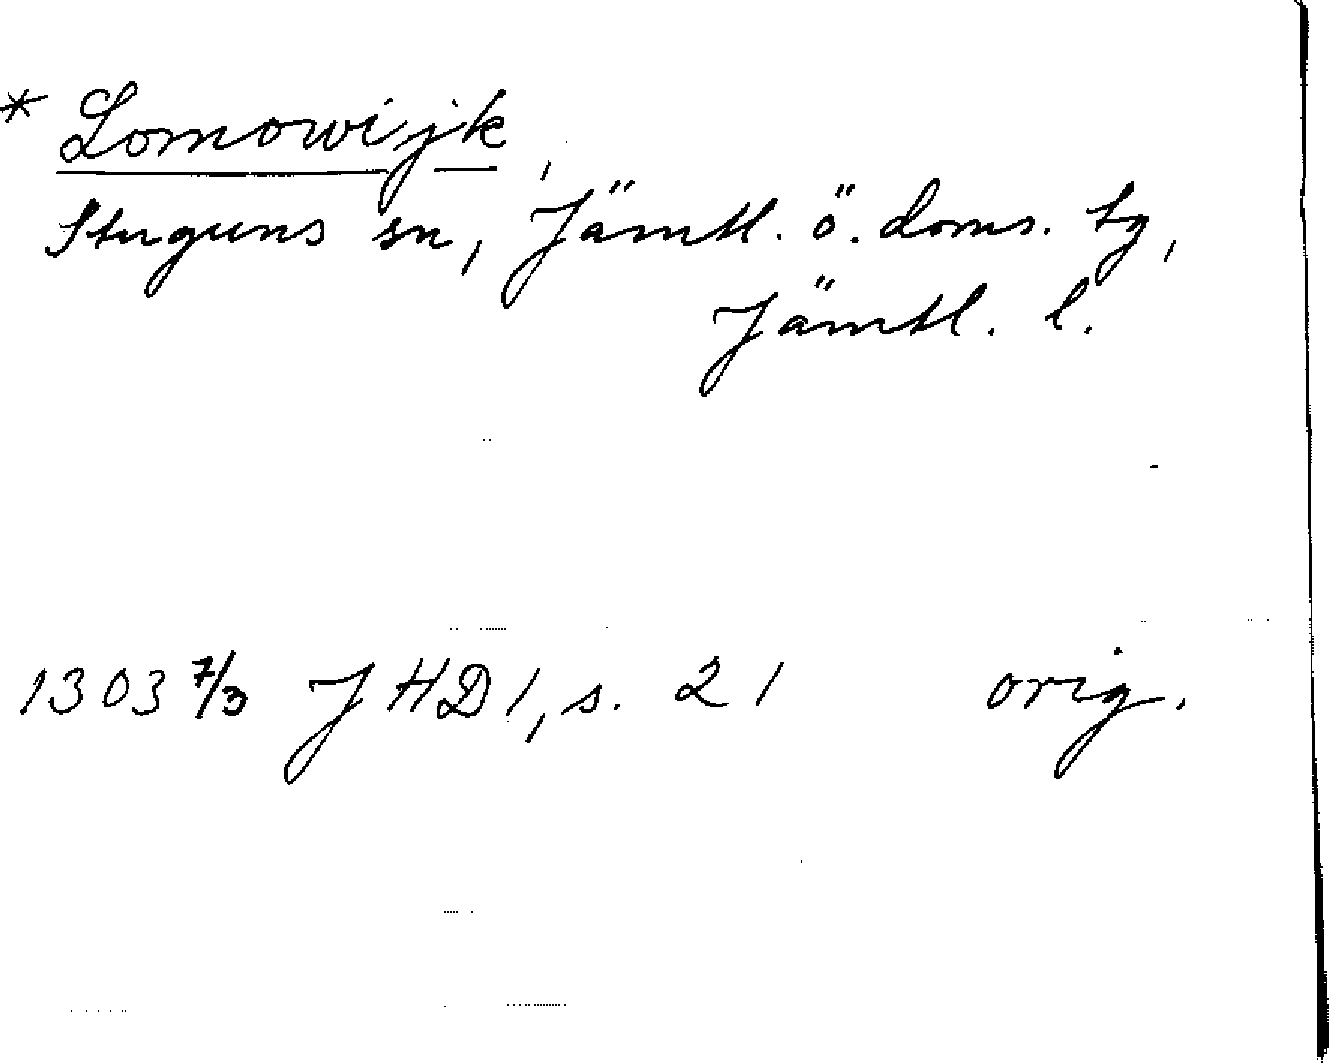 * Lomowijk,
Stuguns sn, Jämtl. ö. doms. tg,
Jämtl. l.
1303 7/3 JHD 1, s. 21 orig.